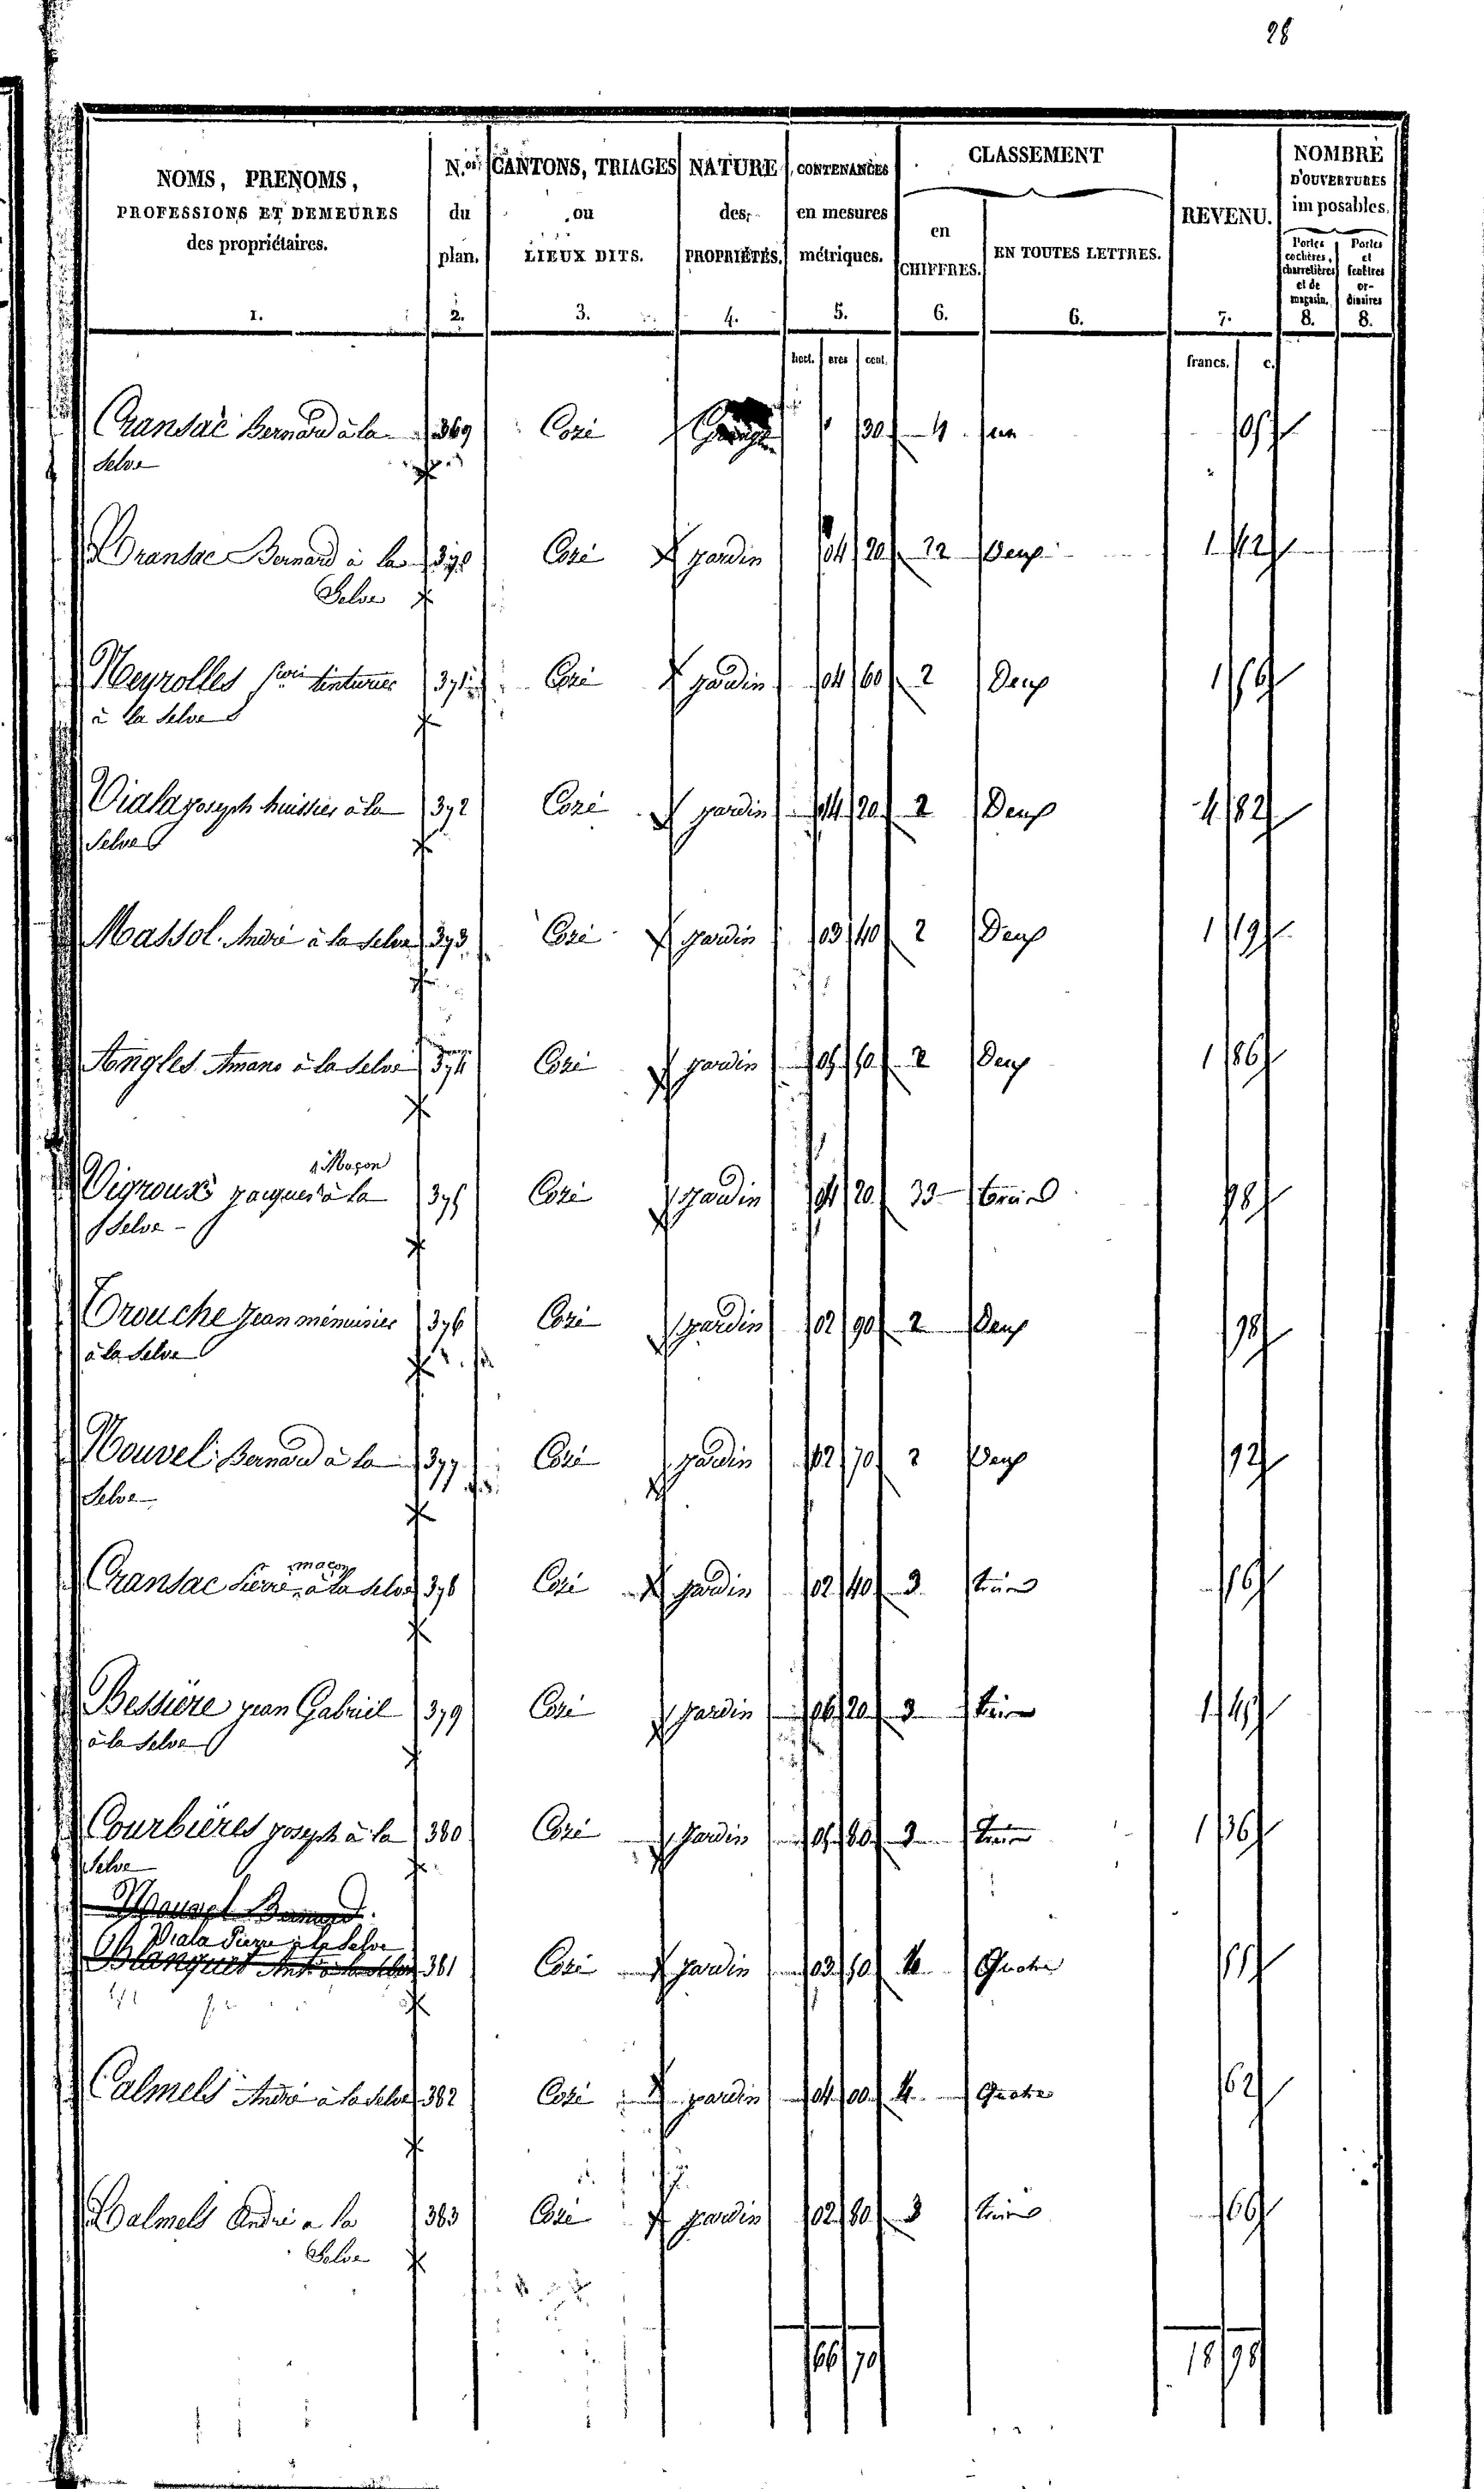 28
NOMS, PRENOMS, PROFESSIONS ET DEMEURES des propriétaires. 1.
N.os du plan. 2.
CANTONS, TRIAGES ou LIEUX DITS. 3.
NATURE des PROPRIÉTÉS. 4.
CONTENANCES en mesures métriques. 5.
CLASSEMENT
en CHIFFRES. 6.
EN TOUTES LETTRES. 6.
REVENU. 7.
NOMBRE D'OUVERTURES imposables.
Portes cochères, charretières et de magasin. 8.
Portes et fenêtres ordinaires 8.
hect. ares cent. francs. c.
Cransac Bernard à la 369 Cozé 30 4 05
Selve
Cransac Bernard à la 370 Cozé jardin 04 20 2 Deux 1 42
Selve
Neyrolles teinturier 371 Cozé jardin 04 60 2 Deux 1 56
à la Selve
Viala joseph huissier à la 372 Cozé jardin 14 20 2 Deux 4 82
Selve
Massol André à la Selve 373 Cozé jardin 03 40 2 Deux 1 19
Angles Amans à la Selve 374 Cozé jardin 05 50 2 Deux 1 86
Maçon
Vigroux jacques à la 375 Cozé jardin 04 20 3 trois 98
Selve
Trouche jean ménuisier 376 Cozé jardin 02 90 2 Deux 98
à la Selve
Nouvel Bernard à la 377 Cozé jardin 02 70 2 Deux 92
Selve
maçon
Cransac Pierre à la Selve 378 Cozé jardin 02 40 3 trois 56
Bessiere jean Gabriel 379 Cozé jardin 06 20 3 trois 1 45
à la Selve
Courbières joseph à la 380 Cozé jardin 05 80 3 trois 1 36
Selve
Nouvel Bernard
Viala Pierre à la Selve
Blanquet Ant. à la Selve 381 Cozé jardin 03 50 4 Quatre 55
Calmels André à la Selve 382 Cozé jardin 04 00 4 Quatre 62
Calmels André a la 383 Cozé jardin 02 80 3 trois 66
Selve
66 70 18 98